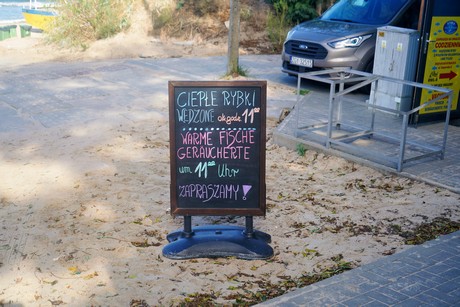 CIEPŁE RYBKI
WĘDZONE od godz. 11⁰⁰
WARME FISCHE
GERAUCHERTE
um 11⁰⁰ Uhr
ZAPRASZAMY!
CODZIENNIE